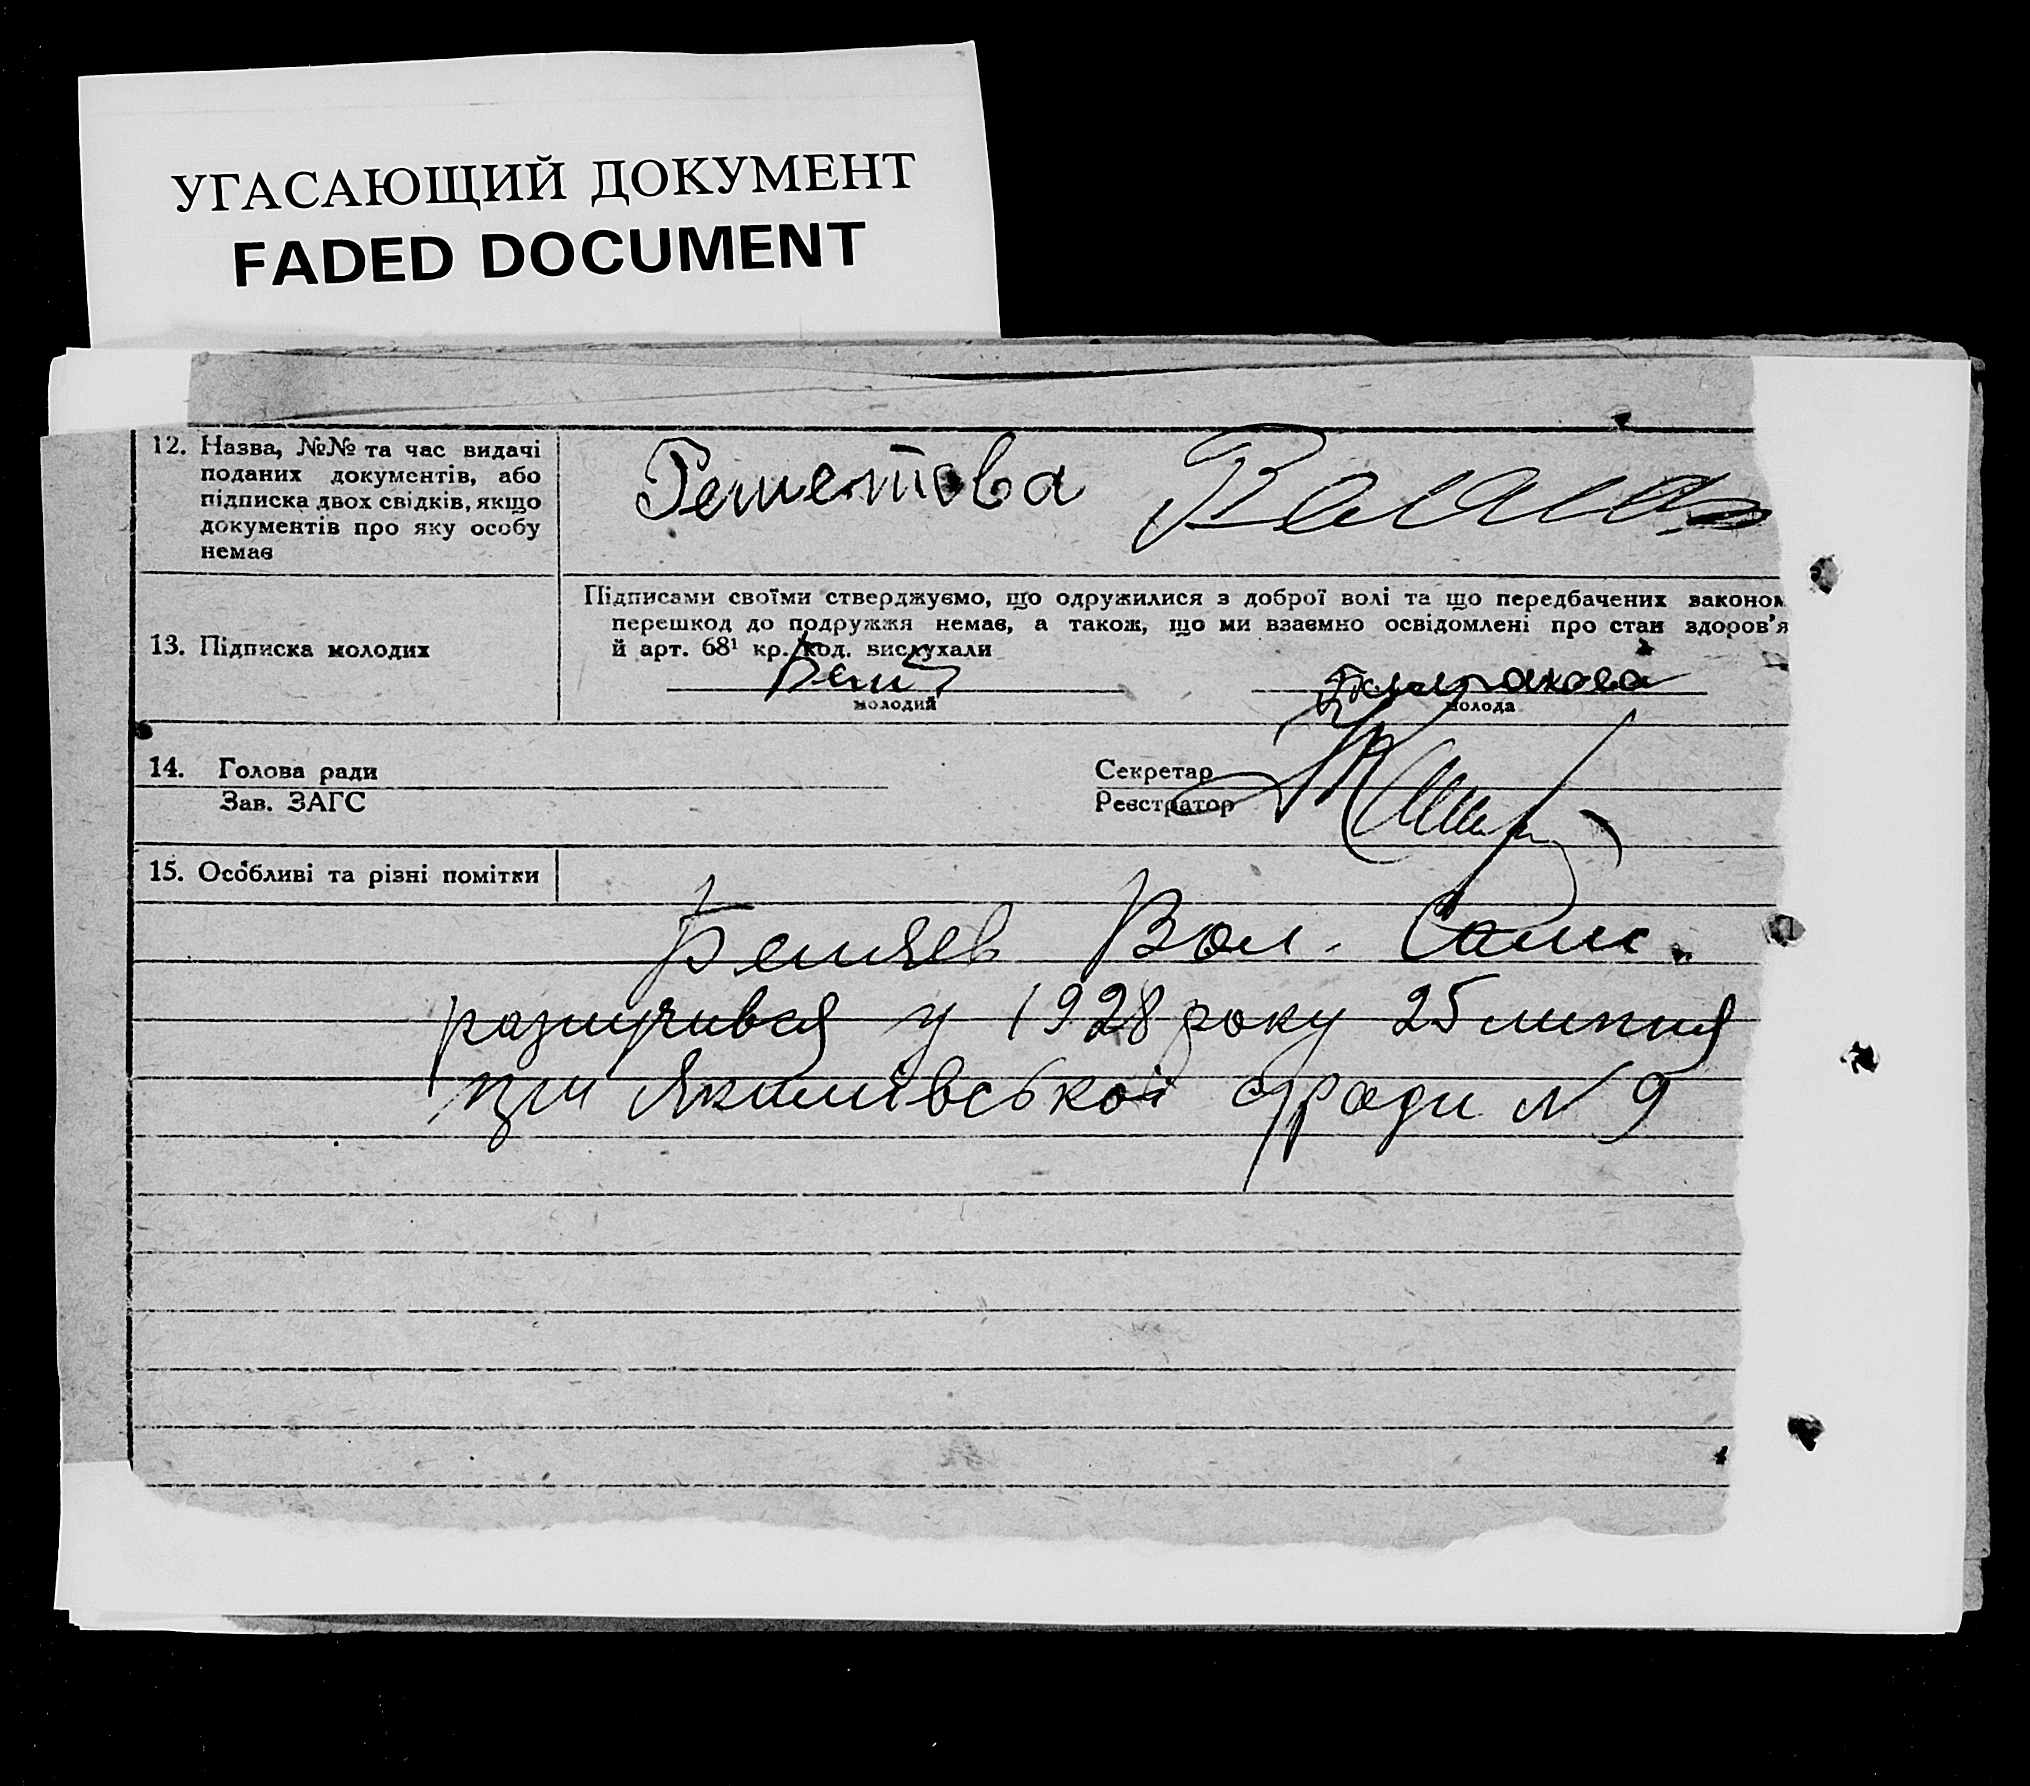 УГАСАЮЩИЙ ДОКУМЕНТ
FADED DOCUMENT
12. Назва, №№ та час видачі
поданих документів, або
підписка двох свідків, якщо
документів про яку особу
немає
13. Підписка молодих
Підписами своїми стверджуємо, що одружилися з доброї волі та що передбачених законом
перешкод до подружжя немає, а також, що ми взаємно освідомлені про стан здоров'я
й арт. 68¹ кр. код. вислухали
молодий
молода
14. Голова ради
Зав. ЗАГС
Секретар
Реєстратор
15. Особливі та різні помітки
Беляев Вол. Сам.
у 1928 року 25 липня
при Якимівській с/ради N 9